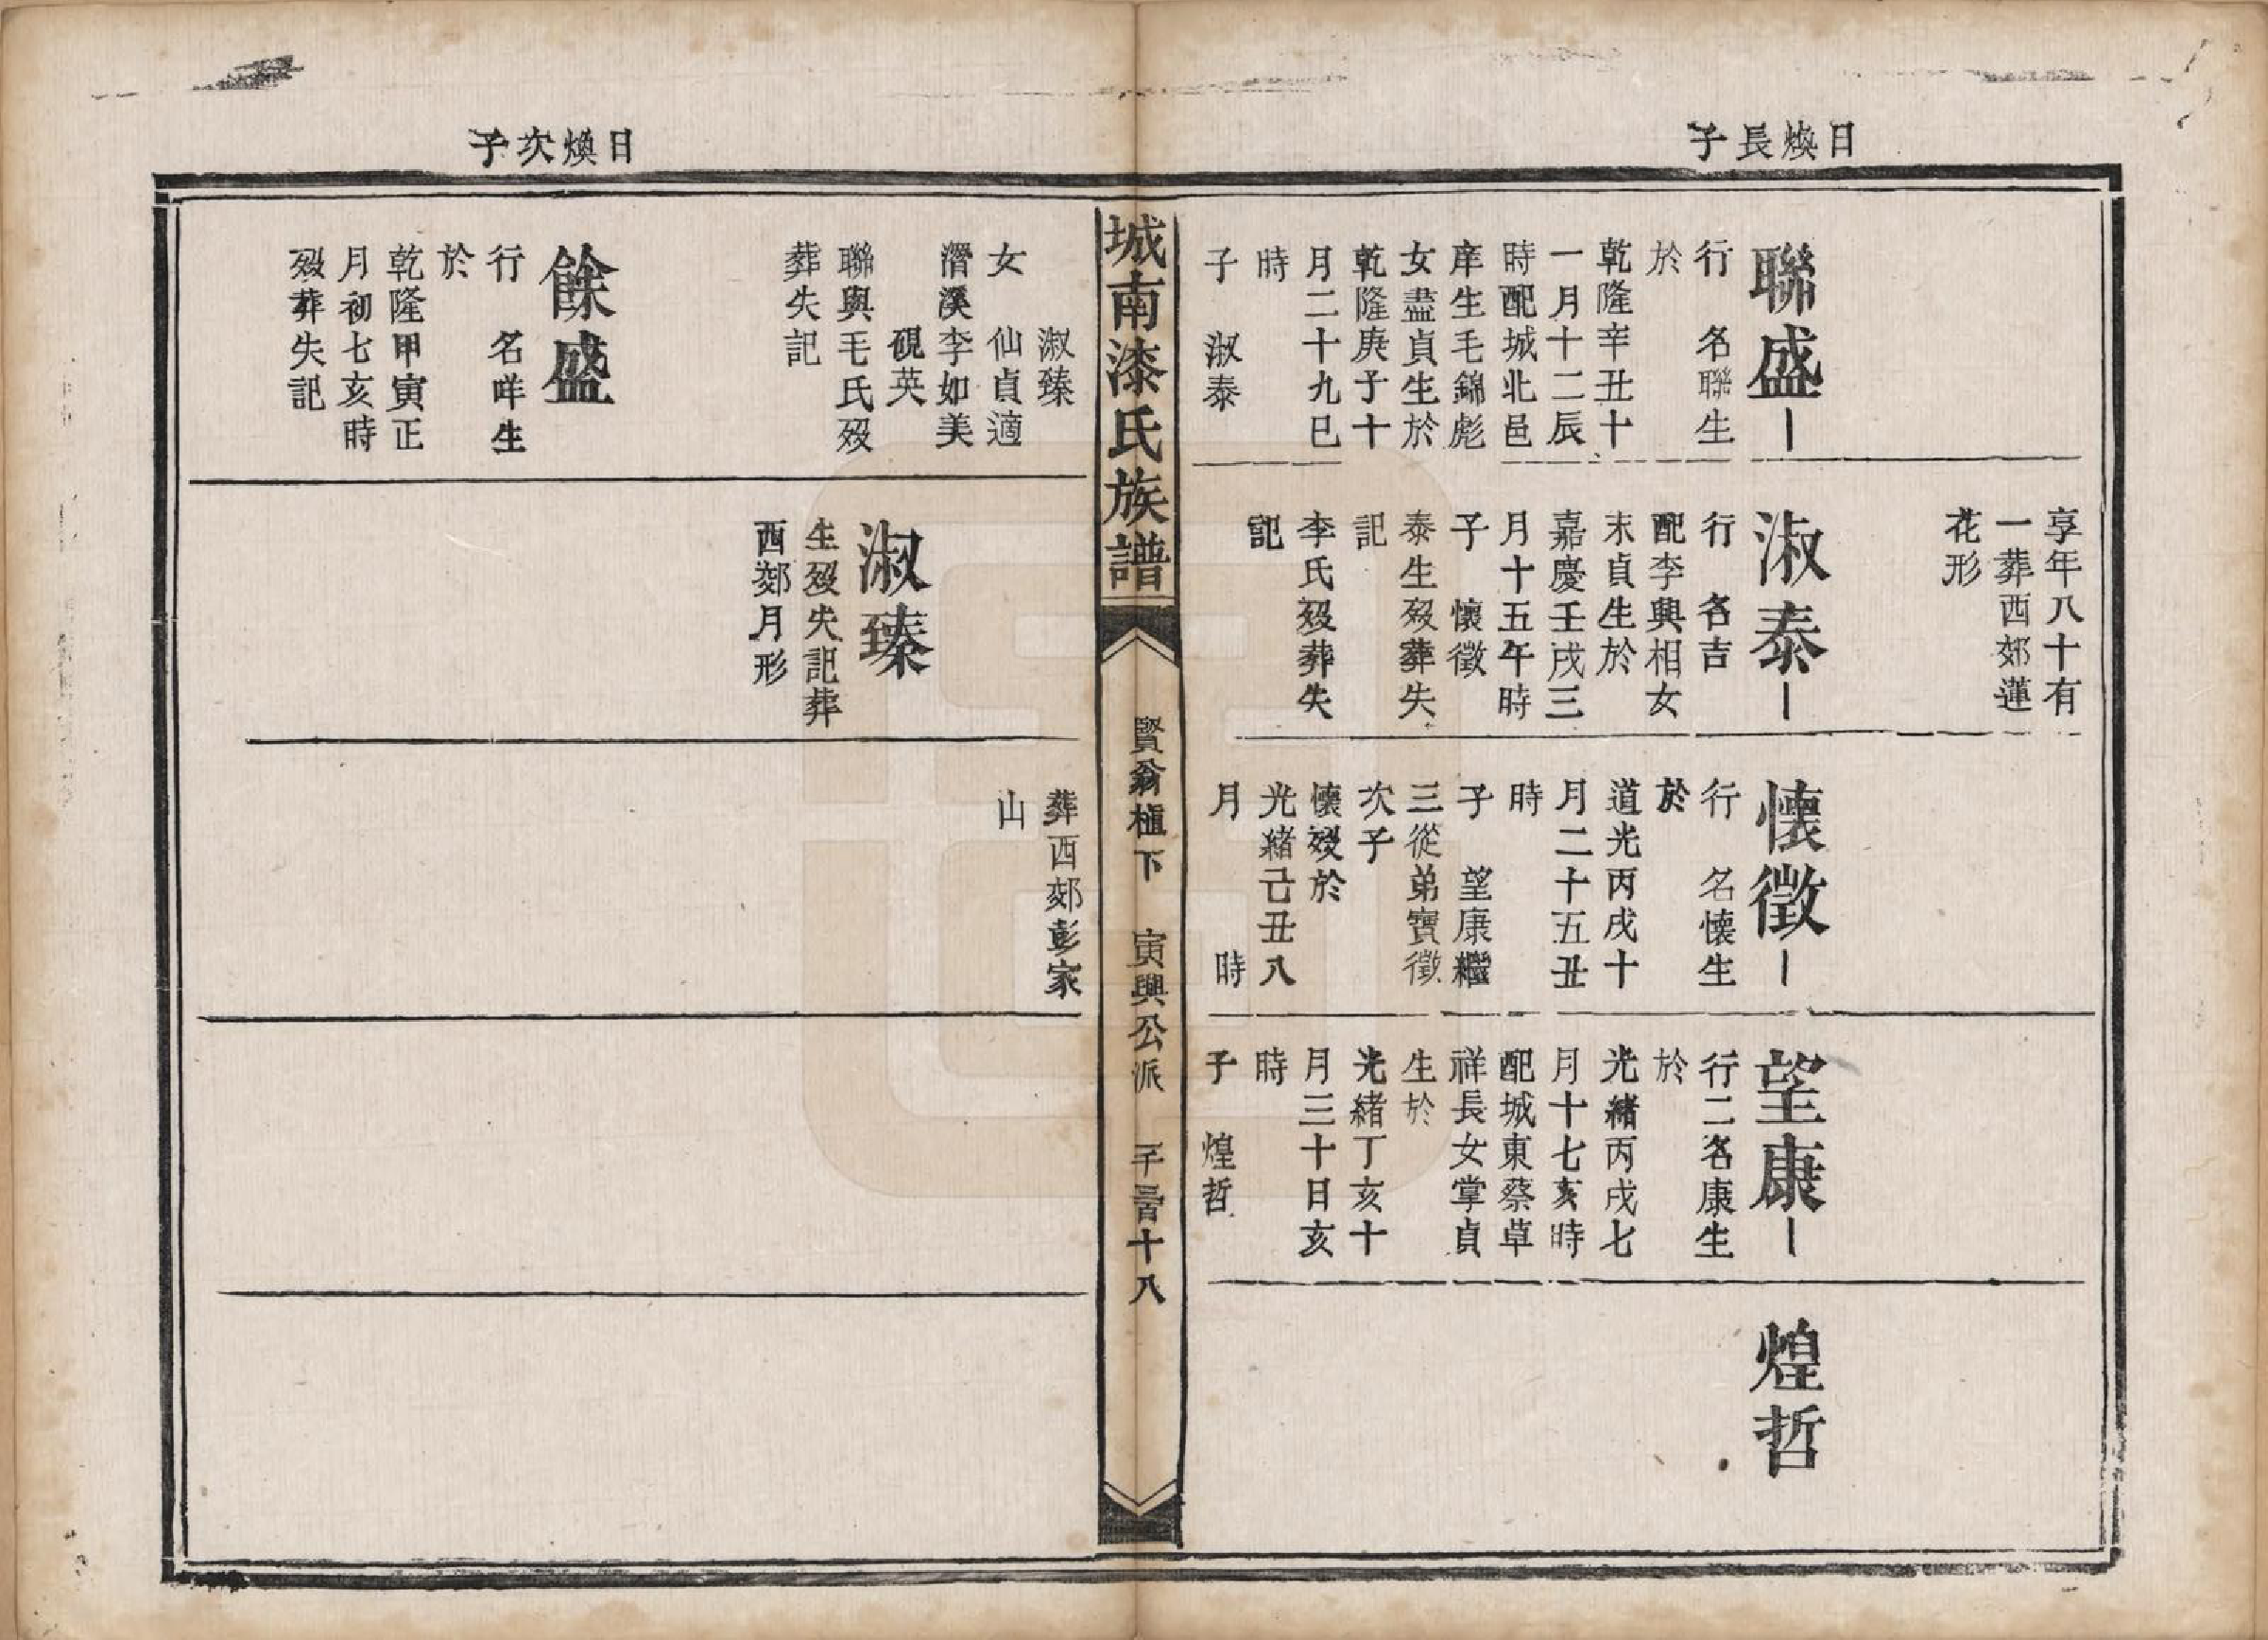 日煥長子
聯盛
行　名聯生
於
乾隆辛丑十
一月十二辰
時配城北邑
庠生毛錦彪
女盡貞生於
乾隆庚子十
月二十九巳
時
子　淑泰
享年八十有
一葬西郊蓮
花形
淑泰
行　名吉
配李興相女
末貞生於
嘉慶壬戌三
月十五午時
子　懷徵
泰生歿葬失
記
李氏歿葬失
記
懷徵
行　名懷生
於
道光丙戌十
月二十五丑
時
子　望康繼
三從弟寶徵
次子
懷歿於
光緒己丑八
月　　　時
望康
行二名康生
於
光緒丙戌七
月十七亥時
配城東蔡草
祥長女掌貞
生於
光緒丁亥十
月三十日亥
時
子　煌哲
煌哲
城南漆氏族譜
賢翁植下　寅興公派　三百十八
日煥次子
淑臻
女　仙貞適
潛溪李如美
硯英
聯與毛氏歿
葬失記
餘盛
行　名咩生
於
乾隆甲寅正
月初七亥時
歿葬失記
淑臻
生歿失記葬
西郊月形
葬西郊彭家
山